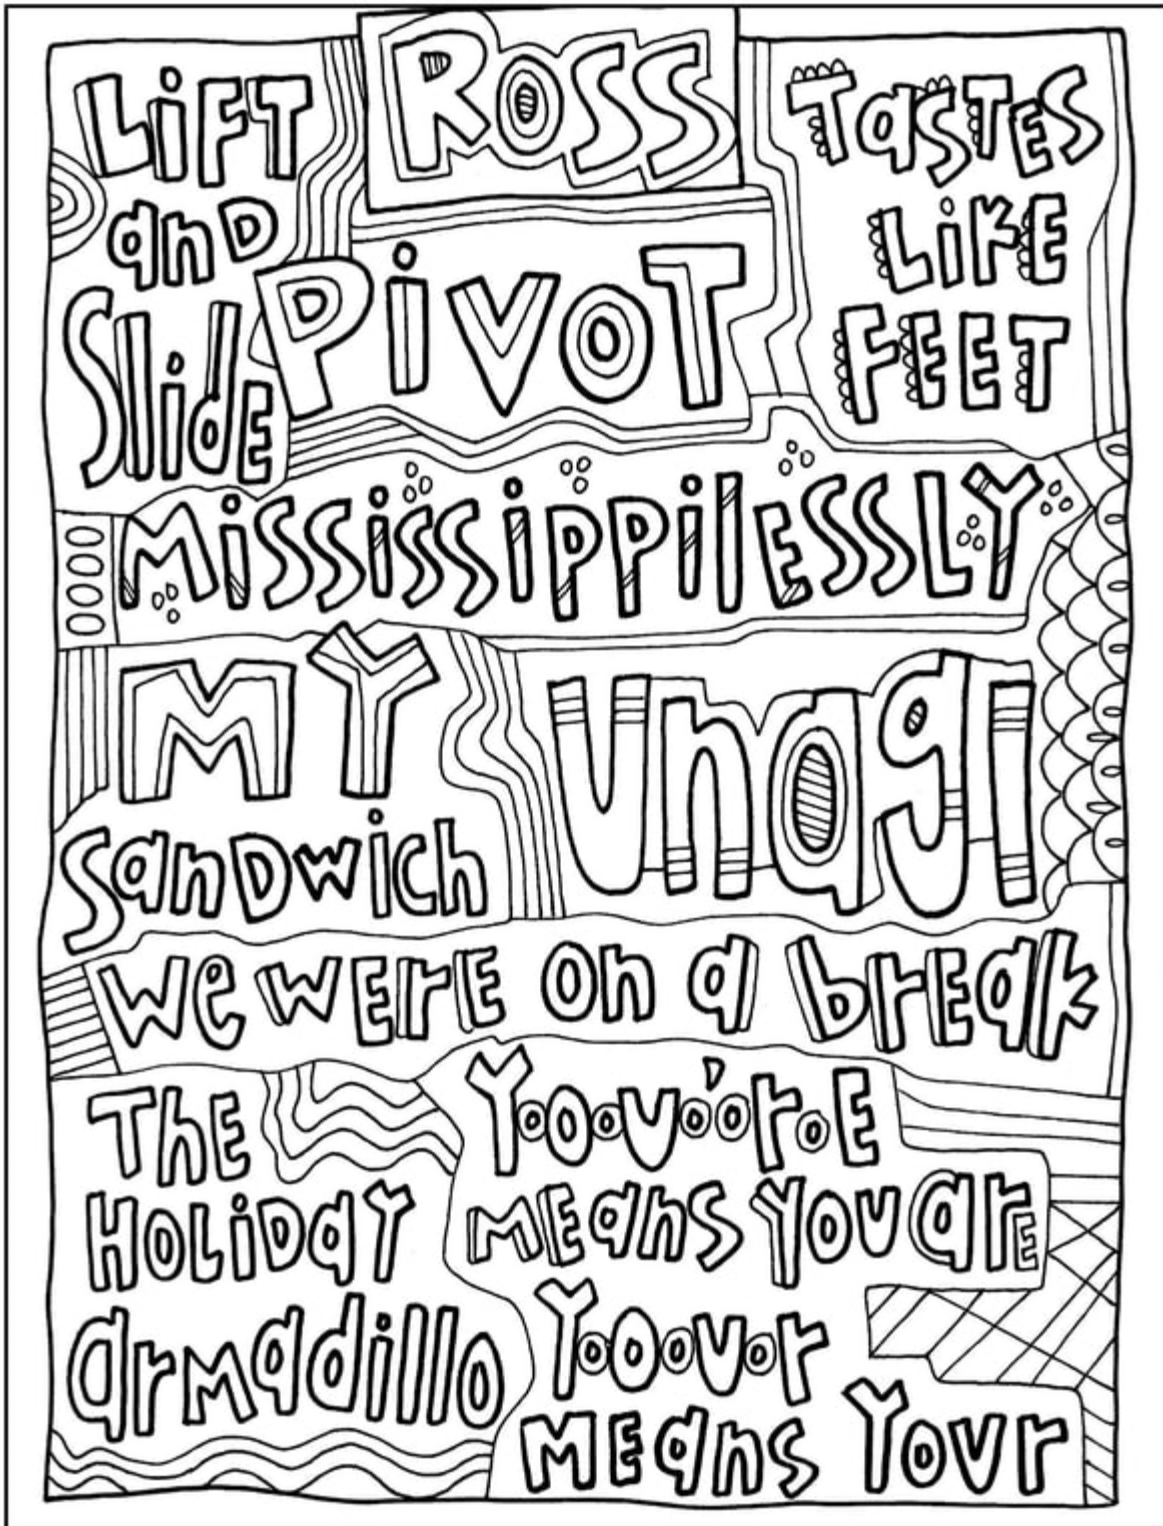 ROSS
LiFT
anD
SlidE
PiVOT
TasTES
LiKE
FEET
MiSSiSSiPPilESSLY
MY
SanDwich
unagi
we wERE on a brEak
ThE
HOLiDaY
armadillo
You'rE
MEans You arE
Your
MEans Your